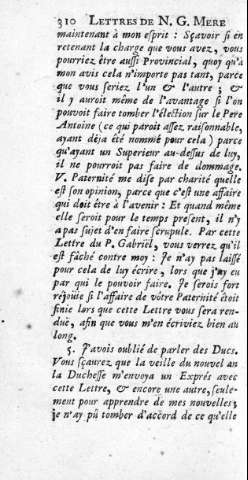 310 LETTRES DE N. G. MERE
maintenant à mon esprit : Sçavoir si en
retenant la charge que vous avez, vous
pourriez être aussi Provincial, quoy qu'à
mon avis cela n'importe pas tant, parce
que vous seriez l'un & l'autre ; &
il y auroit même de l'avantage si l'on
pouvoit faire tomber l'élection sur le Pere
Antoine (ce qui paroit assez raisonnable,
ayant déja été nommé pour cela) parce
qu'ayant un Superieur au-dessus de luy,
il ne pourroit pas faire de dommage.
V. Paternité me dise par charité quelle
est son opinion, parce que c'est une affaire
qui doit être à l'avenir : Et quand même
elle seroit pour le temps present, il n'y
a pas sujet d'en faire scrupule. Par cette
Lettre du P. Gabriël, vous verrez qu'il
est fâché contre moy : Je n'ay pas laissé
pour cela de luy écrire, lors que j'ay eu
par qui le pouvoir faire. Je serois fort
réjouie si l'affaire de vôtre Paternité étoit
finie lors que cette Lettre vous sera ren-
duë, afin que vous m'en écriviez bien au
long.
5. J'avois oublié de parler des Ducs.
Vous sçaurez que la veille du nouvel an
la Duchesse m'envoya un Exprés avec
cette Lettre, & encore une autre, seule-
ment pour apprendre de mes nouvelles;
je n'ay pû tomber d'accord de ce qu'elle